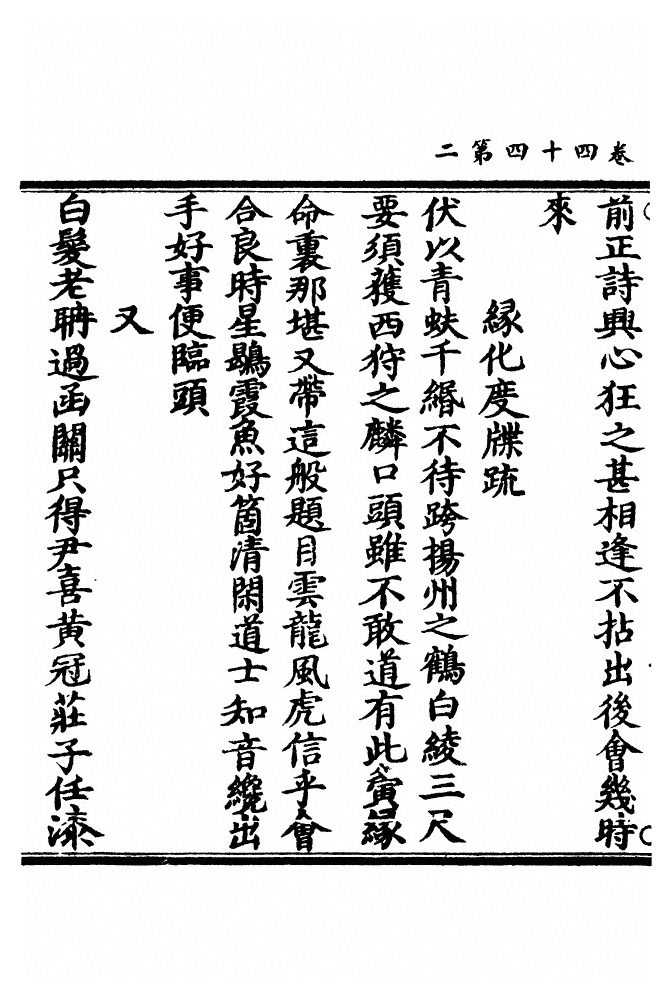 卷四十四第二
前正詩興心狂之甚相逢不拈出後會幾時
來
緣化度牒疏
伏以青蚨千緡不待跨揚州之鶴白綾三尺
要須獲西狩之麟口頭雖不敢道有此夤緣
命裏那堪又帶這般題目雲龍風虎信乎會
合良時星鶡霞魚好箇清閑道士知音纔出
手好事便臨頭
又
白髮老聃過函關只得尹喜黃冠莊子任漆